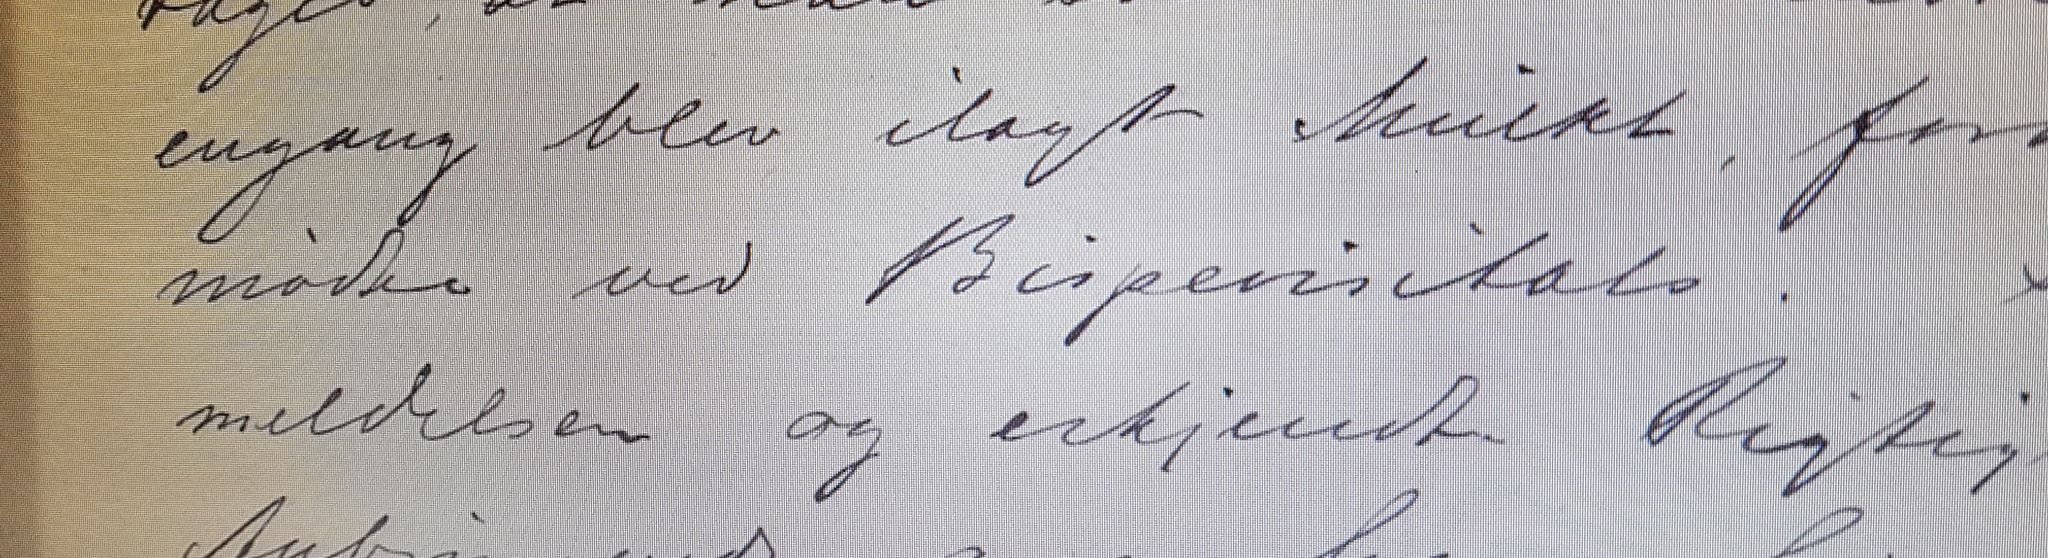 engang blev ilagt Mulkt, for
mødte ved Bispevisitats.
meldelsen og erkjendte Rigtig